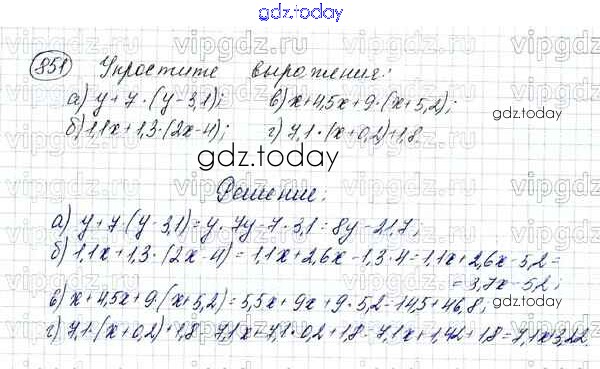 gdz.today
851 Упростите выражение:
а) y+7·(y-3,1); в) x+4,5x+9·(x+5,2);
б) 1,1x+1,3·(2x-4); г) 7,1·(x+0,2)+1,8.
gdz.today
gdz.today
Решение:
а) y+7·(y-3,1)=y·7y-7·3,1=8y-21,7;
б) 1,1x+1,3·(2x-4)=1,1x+2,6x-1,3·4=1,1x+2,6x-5,2=
=3,7x-5,2;
в) x+4,5x+9·(x+5,2)=5,5x+9x+9·5,2=14,5+46,8;
г) 7,1·(x+0,2)+1,8=7,1x+7,1·0,2+1,8=7,1x+1,42+1,8=7,1x+3,22.
gdz.today
gdz.today